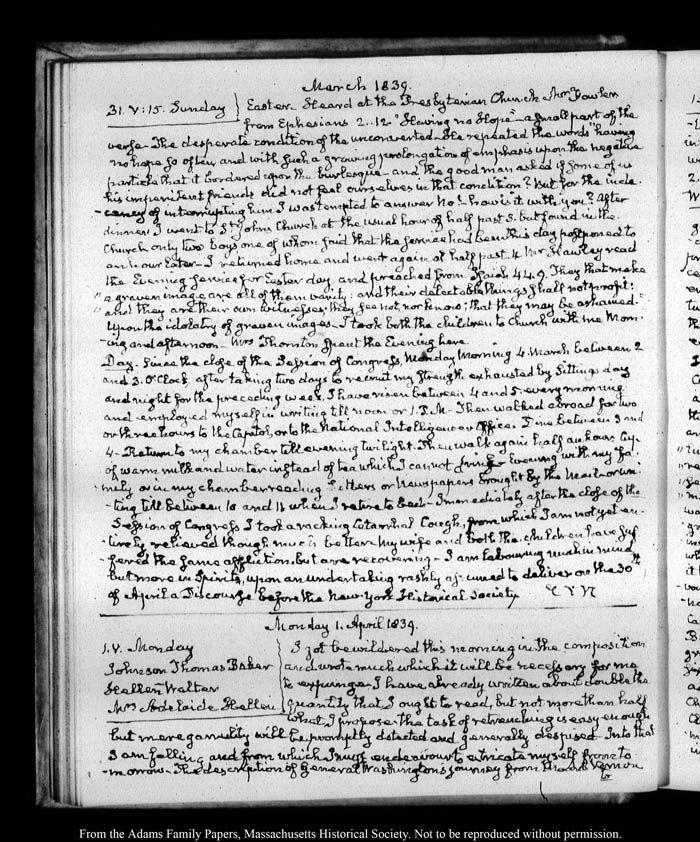 March 1839.
31. V:15. Sunday } Easter. Heard at the Presbyterian Church Mr Fowler
from Ephesians 2.12 "Having no Hope" a small part of the
verse. The desperate condition of the unconverted. He repeated the words "having
no hope so often and with such a growing prolongation of emphasis upon the negative
particle that it bordered upon the burlesque. and the good man asked if some of us
his impenitent friends did not feel ourselves in that condition? But for the inde-
-cency of interrupting him I was tempted to answer No! how is it with you? After
dinner I went to St John's Church at the usual hour of half past 3. but found in the
Church only two boys one of whom said that the service had been this day postponed to
an hour later. I returned home and went again at half past 4. Mr Hawley read
the Evening service for Easter day, and preached from Isaiah 44.9. They that make
"a graven image are all of them vanity: and their delectable things shall not profit:
"and they are their own witnesses; they see not, nor know; that they may be ashamed."
Upon the idolatry of graven images. I took both the children to Church with me Morn-
-ing and afternoon. Mrs Thornton spent the Evening here.
Day. Since the close of the Session of Congress, Monday Morning 4. March between 2
and 3. O'Clock, after taking two days to recruit my strength exhausted by sittings day
and night for the preceding week, I have risen between 4 and 5. every morning
and employed myself in writing till noon or 1. P.M. Then walked abroad for two
or three hours to the Capitol, or to the National Intelligencer Office. Dine between 3 and
4. Return to my chamber till evening twilight. Then walk again half an hour. Cup
of warm milk and water instead of tea which I cannot drink. Evening with my fa-
-mily or in my chamber reading Letters or Newspapers brought by the Mail or wri-
-ting till between 10 and 11 when I retire to bed. Immediately after the close of the
Session of Congress I took a racking Catarrhal Cough, from which I am not yet en-
-tirely relieved though much better. My wife and both the children have suf-
-fered the same affliction, but are recovering. I am labouring much in mind
but more in Spirits, upon an undertaking rashly assumed to deliver on the 30th
of April a Discourse before the New-York Historical Society.
Monday 1. April 1839.
1. V. Monday
Johnson Thomas Baker
Hellen Walter
Mrs Adelaide Hellen
} I got bewildered this morning in the composition
and wrote much which it will be necessary for me
to expunge. I have already written about double the
quantity that I ought to read, but not more than half
what I propose. the task of retrenching is easy enough
but mere garrulity will be promptly detected and generally despised. Into that
I am falling and from which I must endeavour to extricate myself from to
-morrow. The description of General Washington's journey from Mount Vernon
to
From the Adams Family Papers, Massachusetts Historical Society. Not to be reproduced without permission.